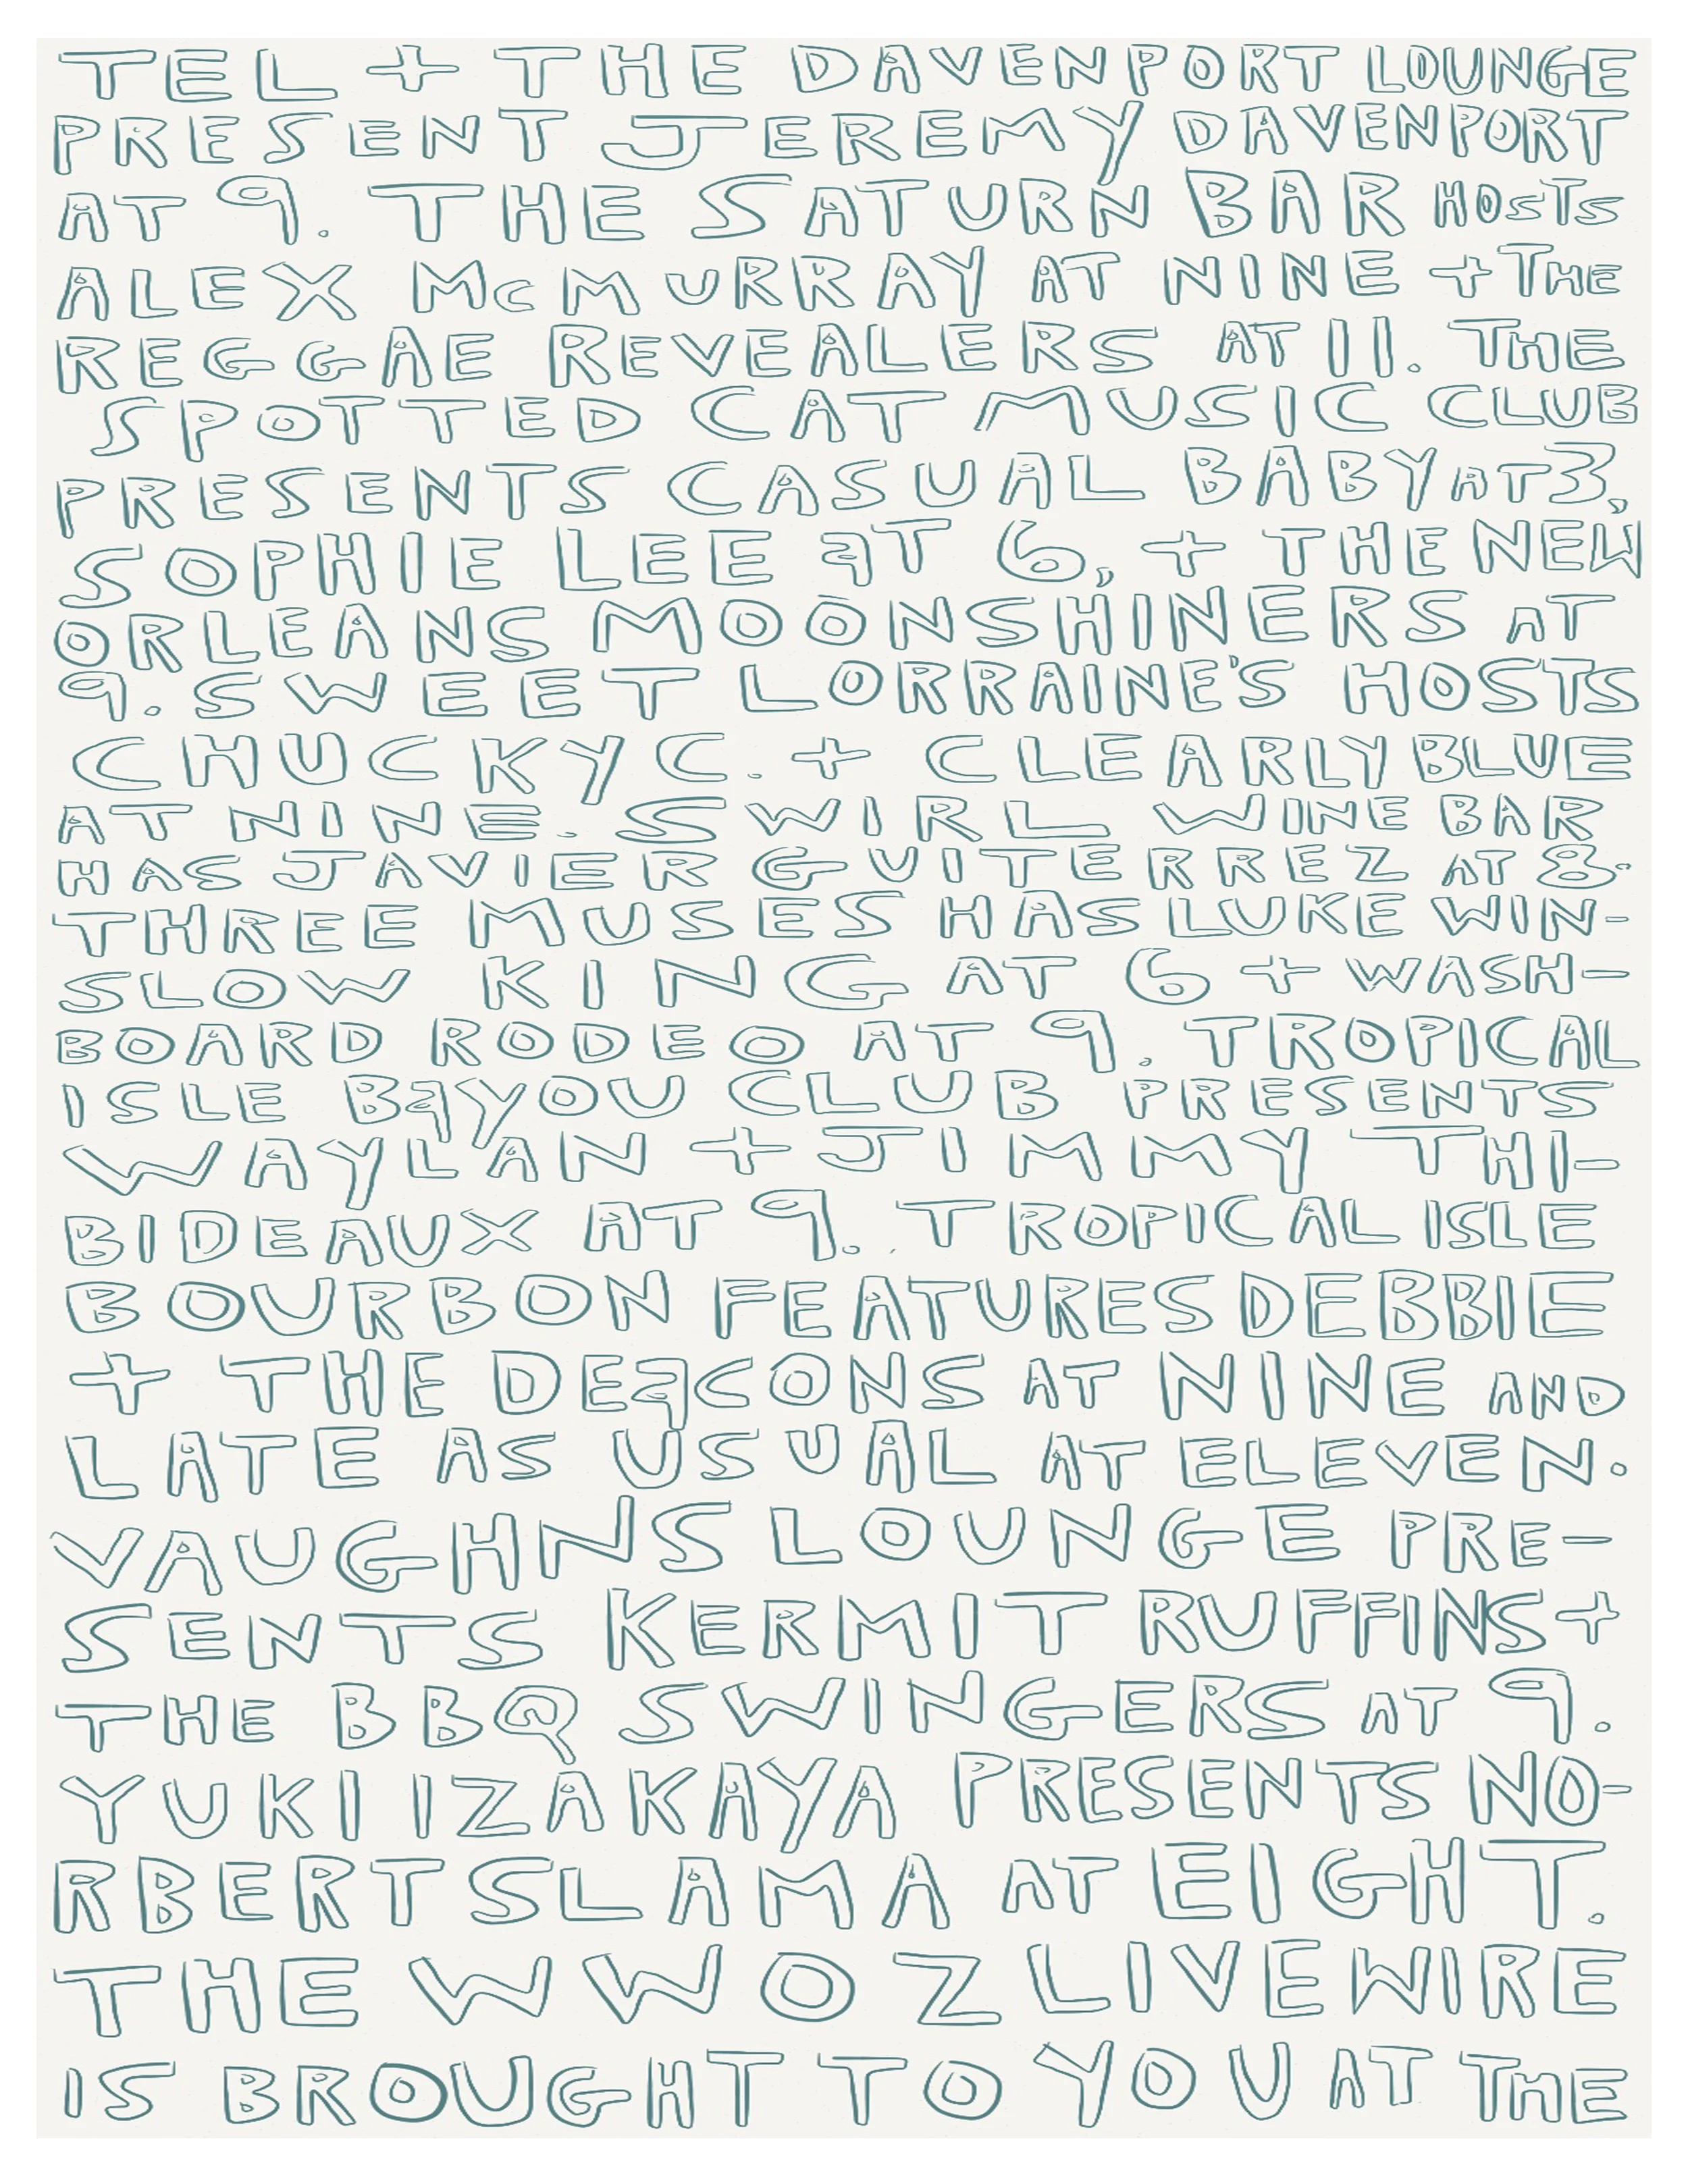 TEL + THE DAVENPORT LOUNGE
PRESENT JEREMY DAVENPORT
AT 9. THE SATURN BAR HOSTS
ALEX McMURRAY AT NINE + THE
REGGAE REVEALERS AT 11. THE
SPOTTED CAT MUSIC CLUB
PRESENTS CASUAL BABY AT 3,
SOPHIE LEE aT 6, + THE NEW
ORLEANS MOONSHINERS AT
9. SWEET LORRAINE'S HOSTS
CHUCKY C. + CLEARLY BLUE
AT NINE. SWIRL WINE BAR
HAS JAVIER GUITERREZ AT 8.
THREE MUSES HAS LUKE WIN-
SLOW KING AT 6 + WASH-
BOARD RODEO AT 9. TROPICAL
ISLE BaYOU CLUB PRESENTS
WAYLAN + JIMMY THI-
BIDEAUX AT 9. TROPICAL ISLE
BOURBON FEATURES DEBBIE
+ THE DEaCONS AT NINE AND
LATE AS USUAL AT ELEVEN.
VAUGHNS LOUNGE PRE-
SENTS KERMIT RUFFINS +
THE BBQ SWINGERS AT 9.
YUKI IZAKAYA PRESENTS NO-
RBERT SLAMA AT EIGHT.
THE WWOZ LIVEWIRE
IS BROUGHT TO YOU AT THE